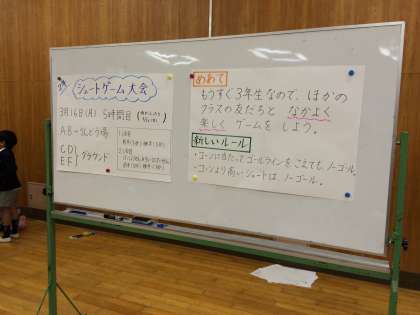 シュートゲーム大会
3月16日(月) 5時間目
AB→さんとう場
CD
EF
グラウンド
めあて
もうすぐ3年生なので、ほかの
クラスの友だちと なかよく
楽しく ゲームを しよう。
新しいルール
・コーンに当たってゴールラインをこえても、ノーゴール。
・コーンより高いシュートは、ノーゴール。